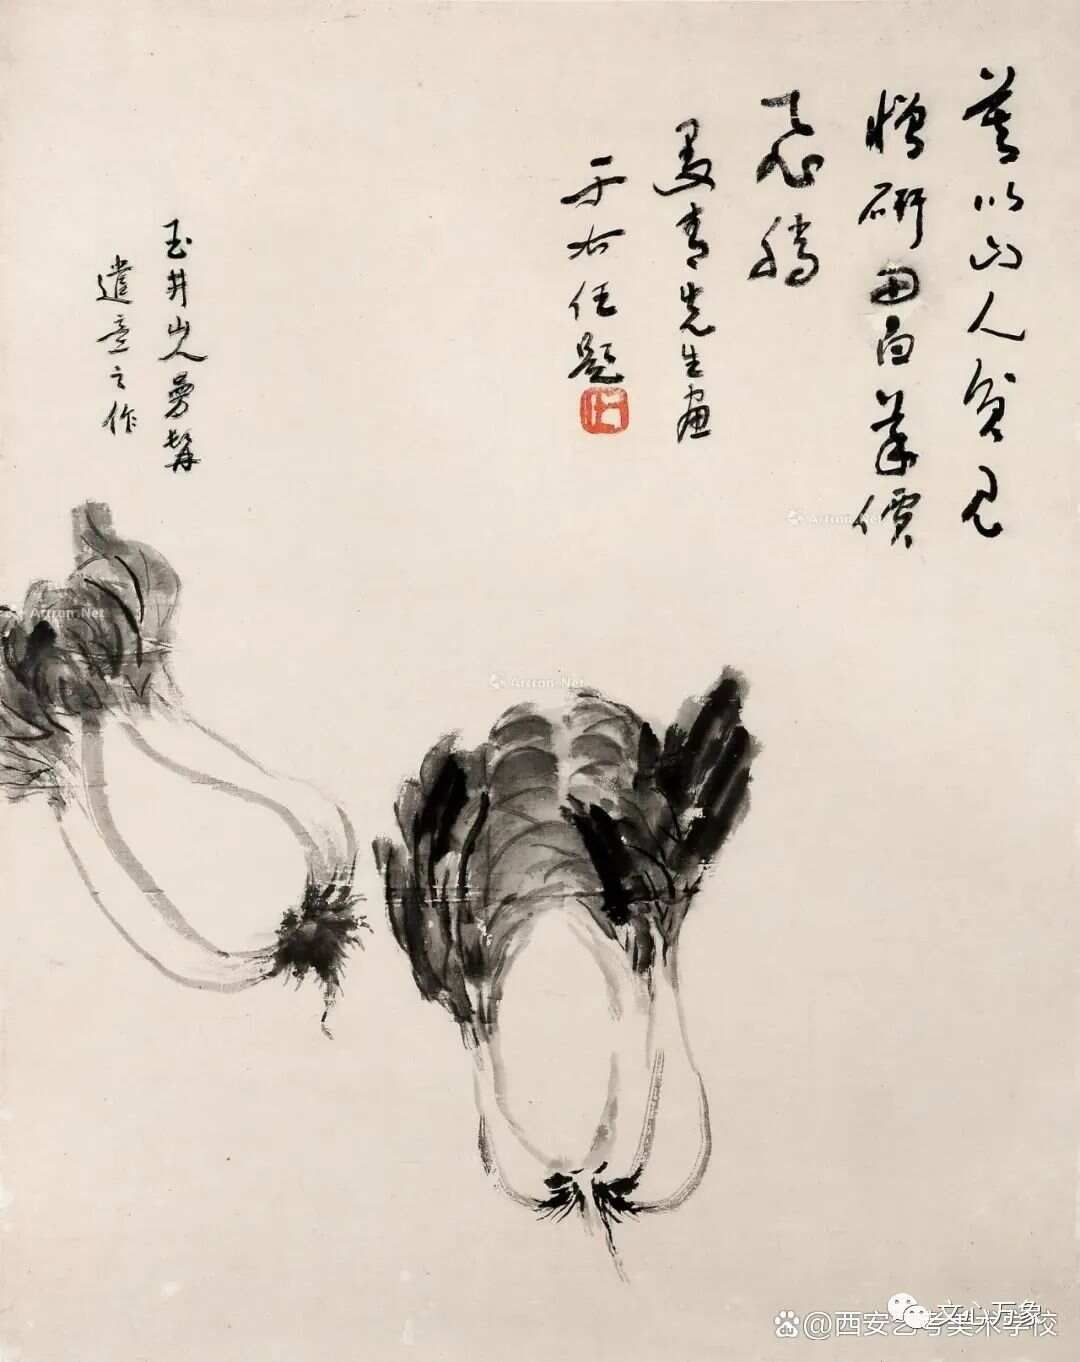 莫以山人貧見
憎研田白菜價
飛騰
曼青先生畫
于右任題
玉井山人曼髯
遣意之作
Artron.Net
Artron.Net
Artron.Net
文心万象
@西安艺考美术学校